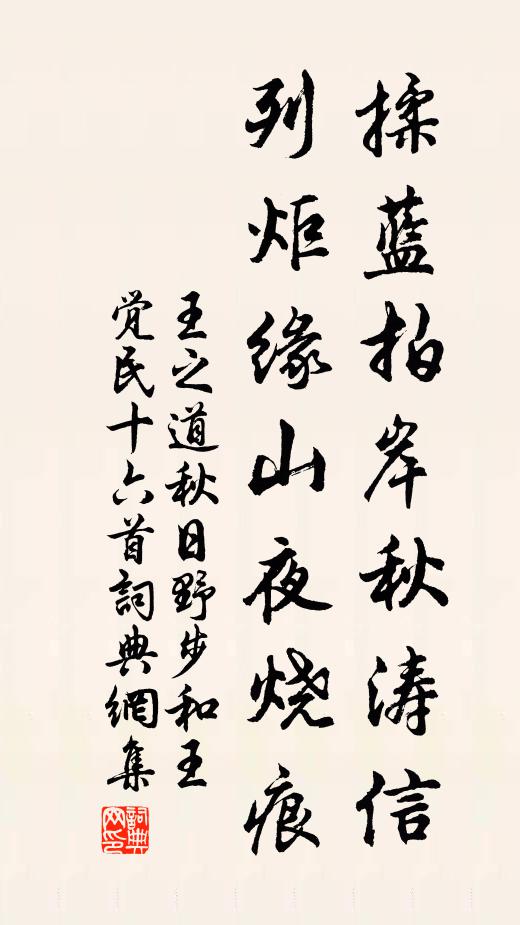 揉藍拍岸秋涛信
列炬缘山夜烧痕
王之道秋日野步和王
觉民十六首詞典網集
詞典网印